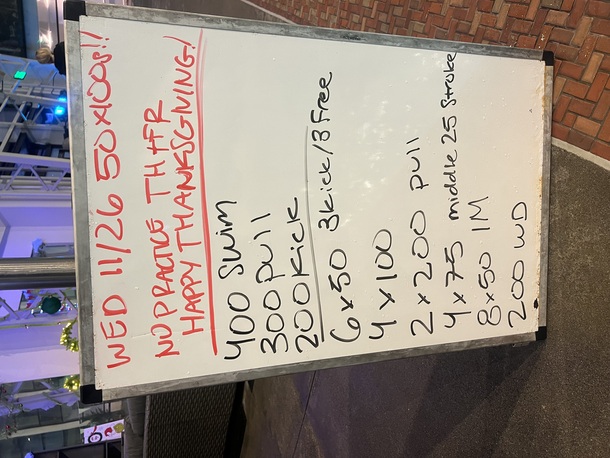 WED 11/26 50x100s!!
NO PRACTICE TH + FR
HAPPY THANKSGIVING!
400 Swim
300 pull
200 Kick
6x50 3kick/3Free
4x100
2x200 pull
4x75 middle 25 Stroke
8x50 IM
200 WD